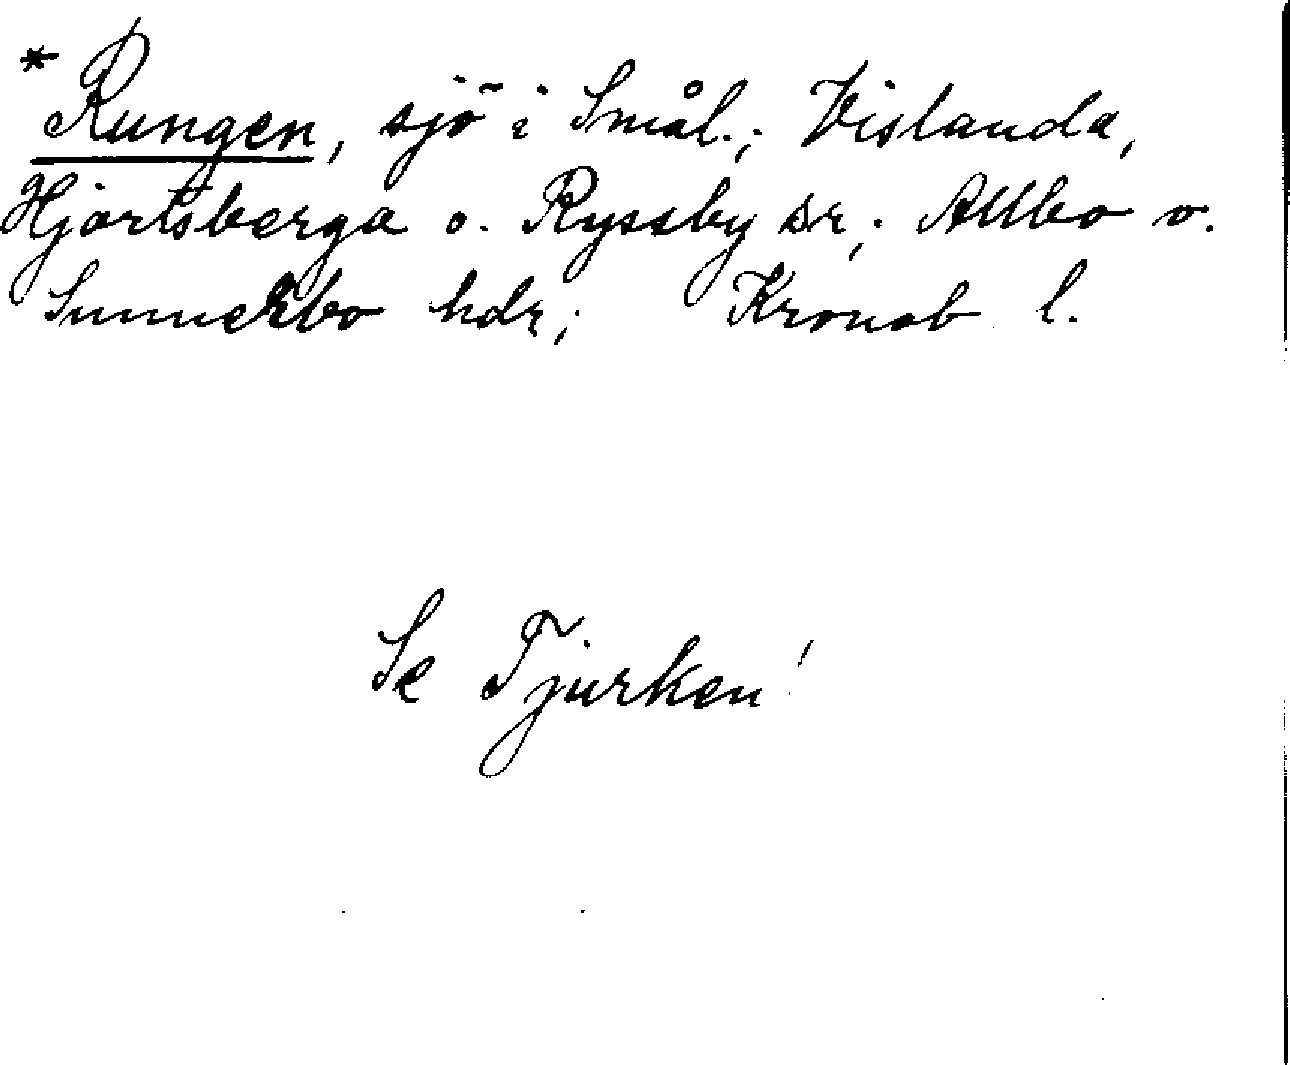 * Rungen, sjö i Smål.; Vislanda,
Hjortsberga o. Ryssby sr; Allbo o.
Sunnerbo hdr; Kronob l.
Se Tjurken!